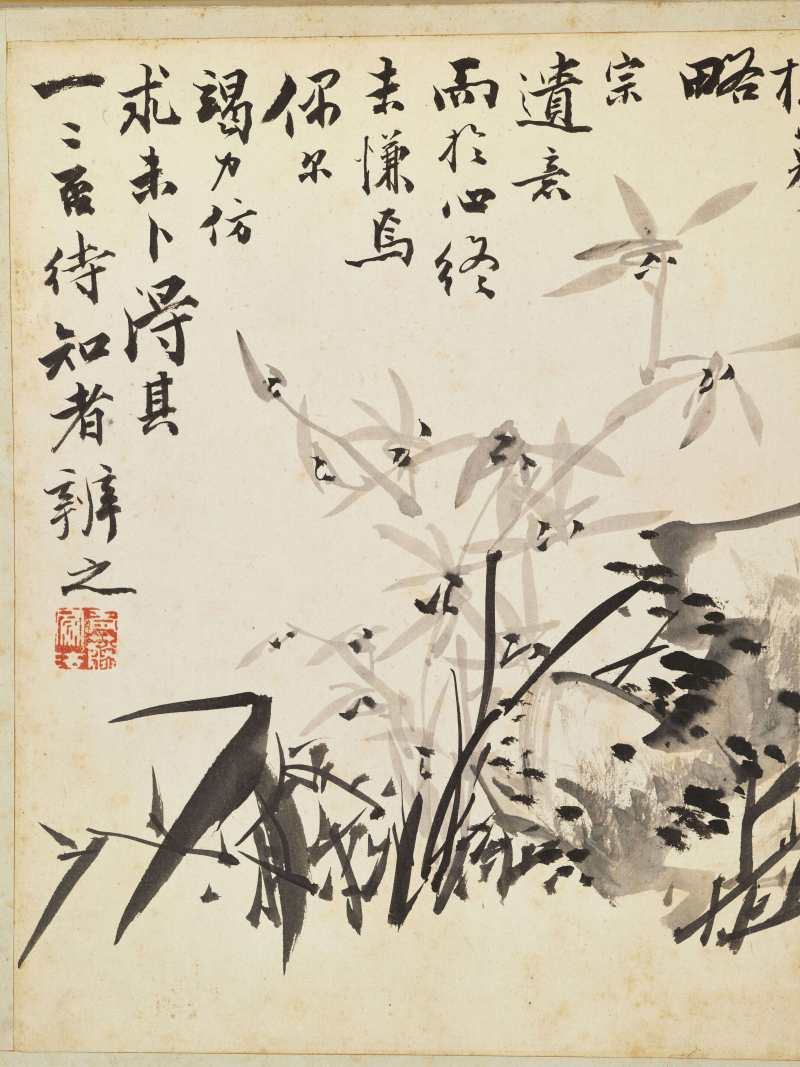 略
宗
遺意
而於心終
未慊焉
尔
竭力仿
求未卜得其
一二否待知者辨之